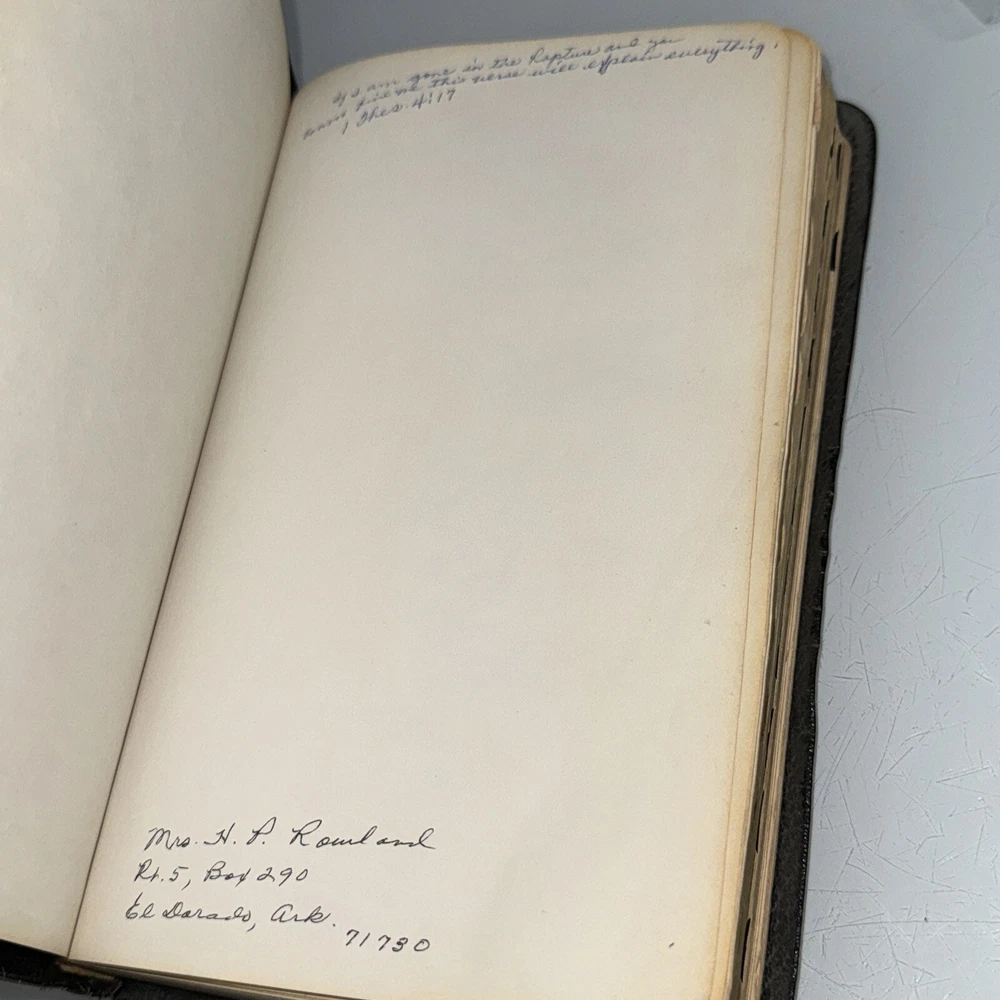 If I am gone in the Rapture and you
have find me this verse will explain everything.
1 Thes. 4:17
Mrs. H. P. Rowland
Rt. 5, Box 290
El Dorado, Ark.
71730